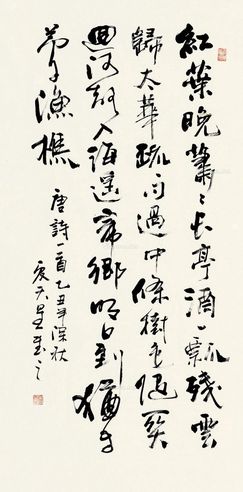 紅葉晚蕭々長亭酒一瓢殘雲
歸太華疏雨過中條樹色隨關
迥河聲入海遥帝鄉明日到猶自
夢漁樵
唐詩一首乙丑年深秋
天星書之